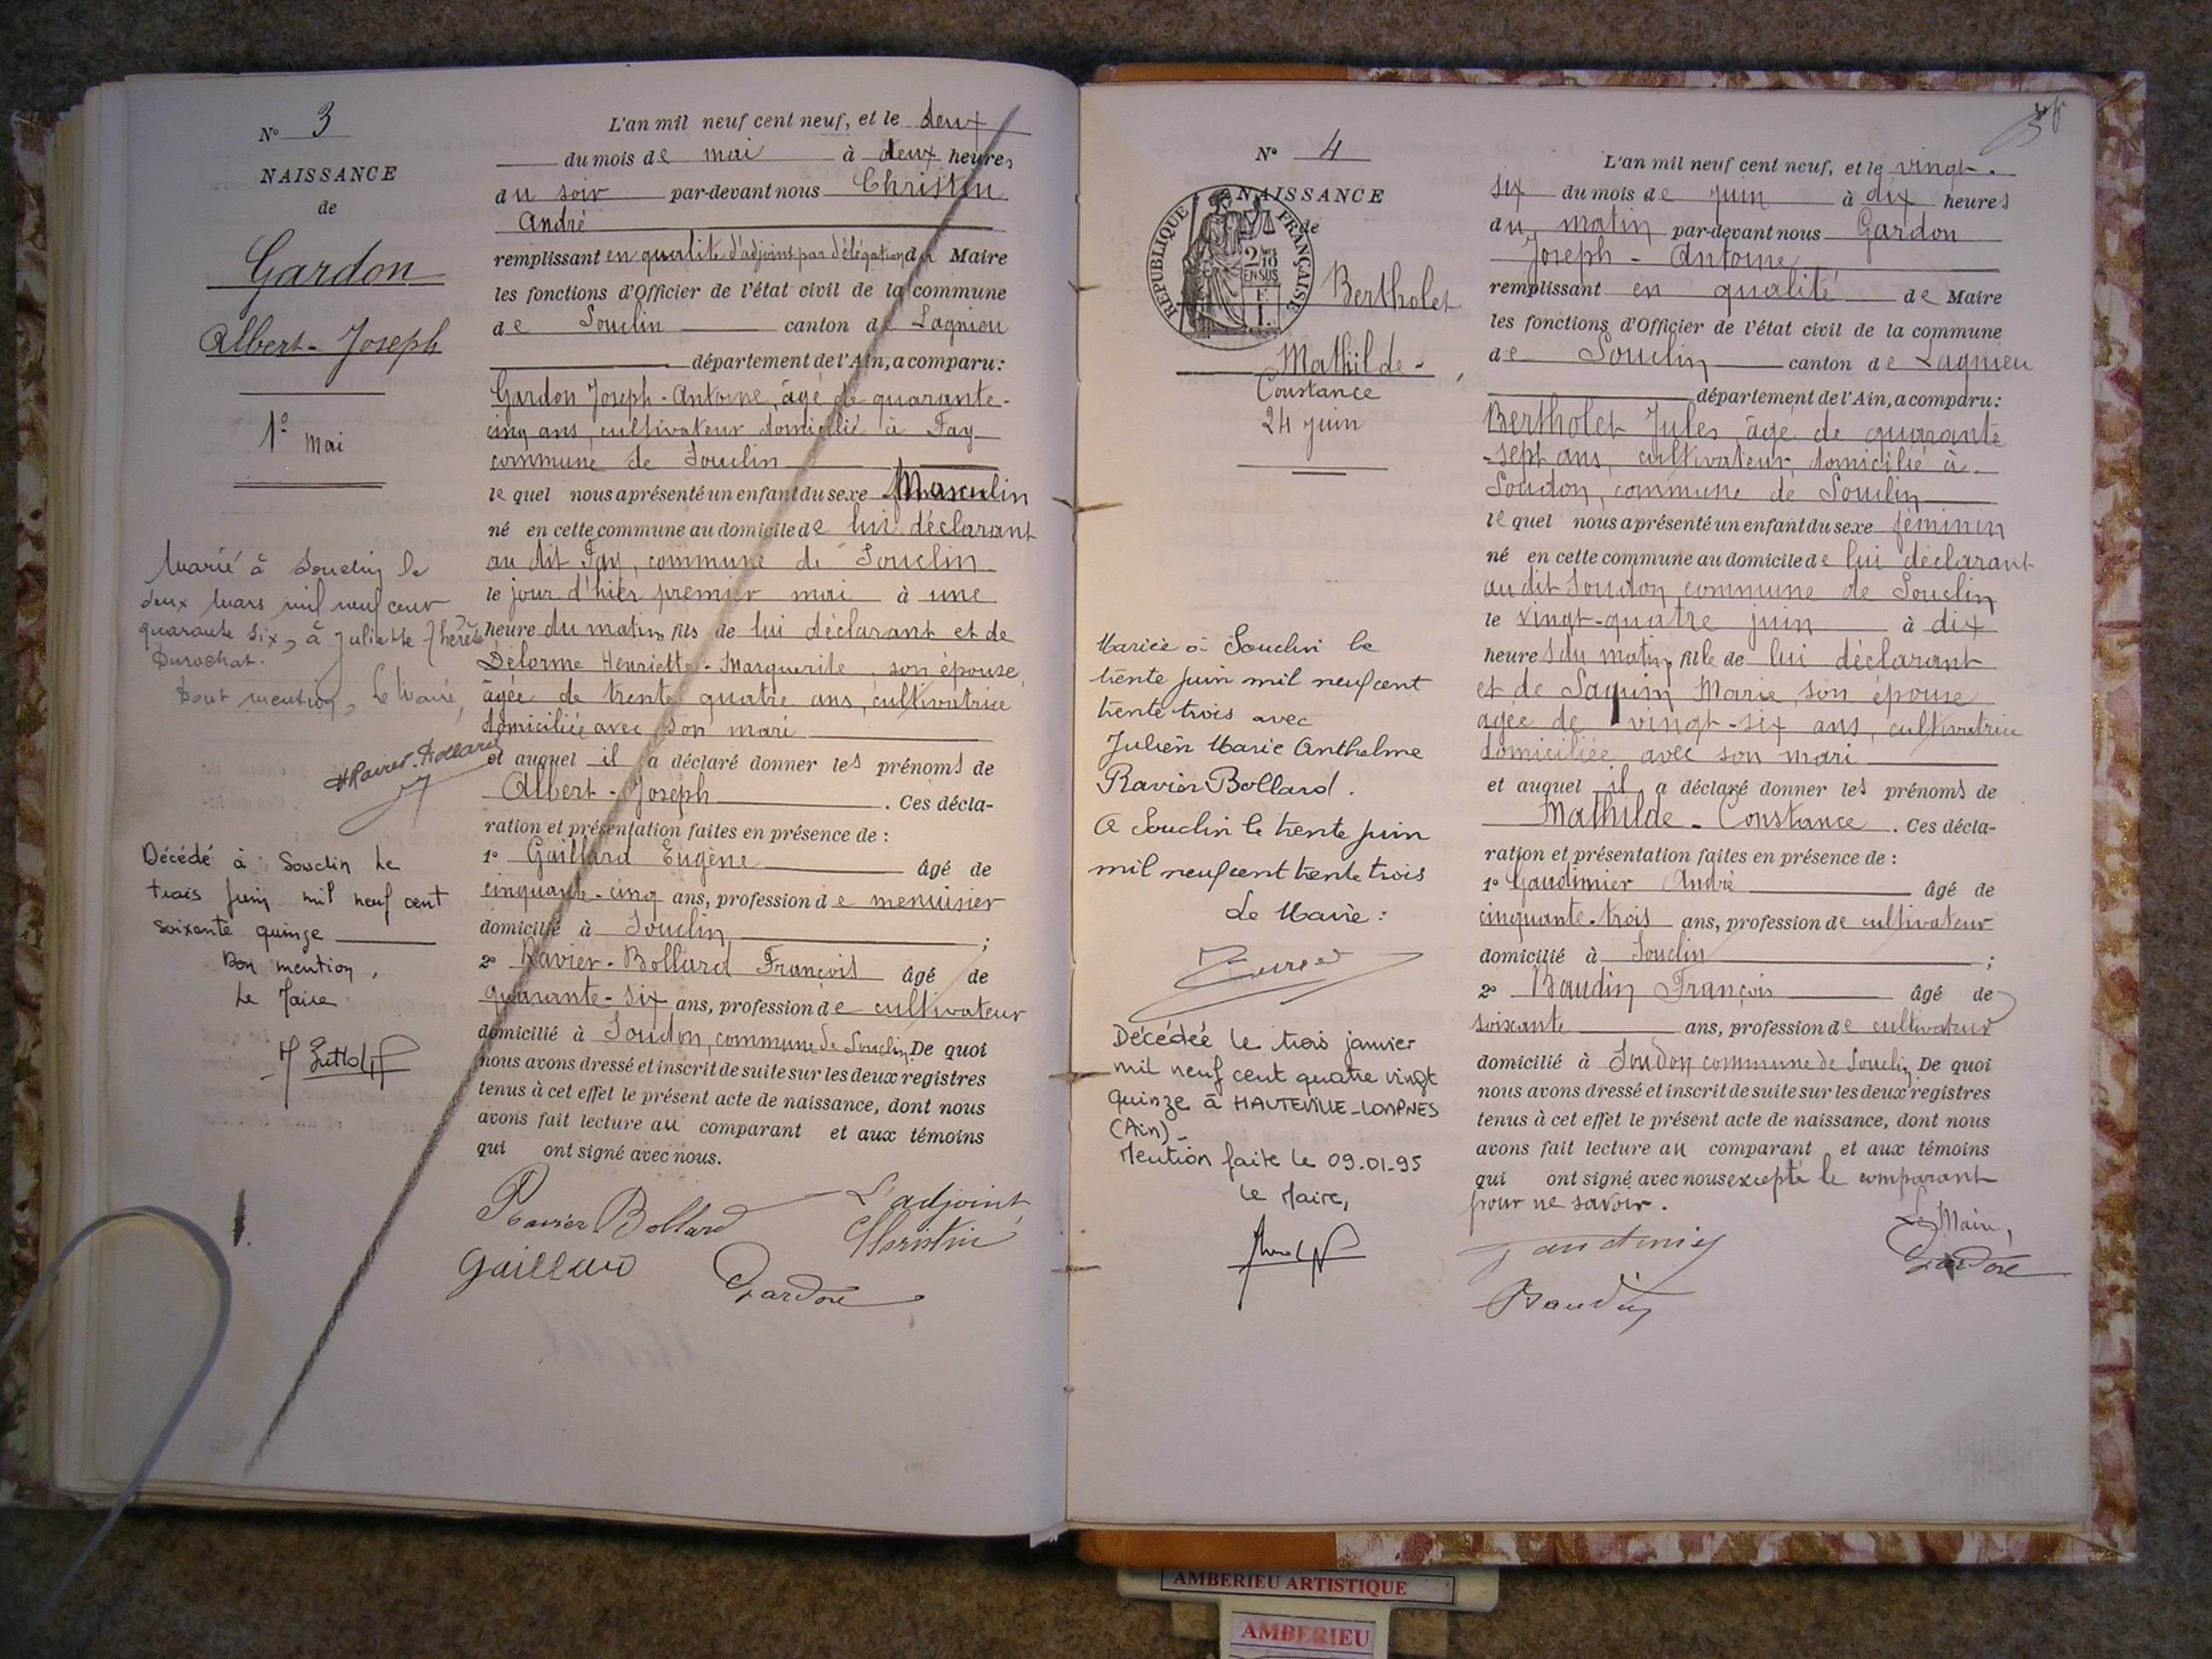 N° 3
NAISSANCE
de
Gardon
Albert-Joseph
1° mai
Marié à Souclin le
deux mars mil neuf cent
quarante six, à Juliette Thérèse
Durochat.
Dont mention, Le Maire,
Ravier-Bollard
Décédé à Souclin le
trois juin mil neuf cent
soixante quinze
Don mention,
Le Maire
L'an mil neuf cent neuf, et le deux
du mois de mai à deux heures
du soir par-devant nous Christin
André
remplissant en qualité d'adjoint par délégation du Maire
les fonctions d'Officier de l'état civil de la commune
de Souclin canton de Lagnieu
département de l'Ain, a comparu :
Gardon Joseph-Antoine, âgé de quarante-
cinq ans, cultivateur domicilié à Fay
commune de Souclin
lequel nous a présenté un enfant du sexe Masculin
né en cette commune au domicile de lui déclarant
au dit Fay, commune de Souclin
le jour d'hier premier mai à une
heure du matin, fils de lui déclarant et de
Delorme Henriette-Marguerite, son épouse,
âgée de trente quatre ans, cultivatrice
domiciliée avec son mari
et auquel il a déclaré donner les prénoms de
Albert-Joseph. Ces décla-
ration et présentation faites en présence de :
1° Gaillard Eugène âgé de
cinquante-cinq ans, profession de menuisier
domicilié à Souclin ;
2° Ravier-Bollard François âgé de
quarante-six ans, profession de cultivateur
domicilié à Soudon, commune de Souclin. De quoi
nous avons dressé et inscrit de suite sur les deux registres
tenus à cet effet le présent acte de naissance, dont nous
avons fait lecture au comparant et aux témoins
qui ont signé avec nous.
Ravier Bollard L'adjoint,
Christin
Gaillard Gardon
N° 4
NAISSANCE
de
REPUBLIQUE FRANÇAISE
2/10 EN SUS
Bertholet
Mathilde-
Constance
24 juin
Mariée à Souclin le
trente juin mil neuf cent
trente trois avec
Julien Marie Anthelme
Ravier-Bollard.
A Souclin le trente juin
mil neuf cent trente trois
Le Maire :
Décédée le trois janvier
mil neuf cent quatre vingt
quinze à HAUTEVILLE-LOMPNES
(Ain)_
Mention faite le 09.01.95
Le Maire,
L'an mil neuf cent neuf, et le vingt-
six du mois de juin à dix heures
du matin par-devant nous Gardon
Joseph-Antoine
remplissant en qualité de Maire
les fonctions d'Officier de l'état civil de la commune
de Souclin canton de Lagnieu
département de l'Ain, a comparu :
Bertholet Jules, âgé de quarante
-sept ans, cultivateur, domicilié à
Soudon, commune de Souclin
lequel nous a présenté un enfant du sexe féminin
né en cette commune au domicile de lui déclarant
au dit Soudon, commune de Souclin
le vingt-quatre juin à dix
heures du matin, fille de lui déclarant
et de Saquin Marie, son épouse
âgée de vingt-six ans, cultivatrice
domiciliée avec son mari
et auquel il a déclaré donner les prénoms de
Mathilde-Constance. Ces décla-
ration et présentation faites en présence de :
1° Gaudinier André âgé de
cinquante-trois ans, profession de cultivateur
domicilié à Souclin ;
2° Baudin François âgé de
soixante ans, profession de cultivateur
domicilié à Soudon commune de Souclin. De quoi
nous avons dressé et inscrit de suite sur les deux registres
tenus à cet effet le présent acte de naissance, dont nous
avons fait lecture au comparant et aux témoins
qui ont signé avec nous excepté le comparant
pour ne savoir.
Le Maire,
Gardon
Baudin
AMBERIEU ARTISTIQUE
AMBERIEU